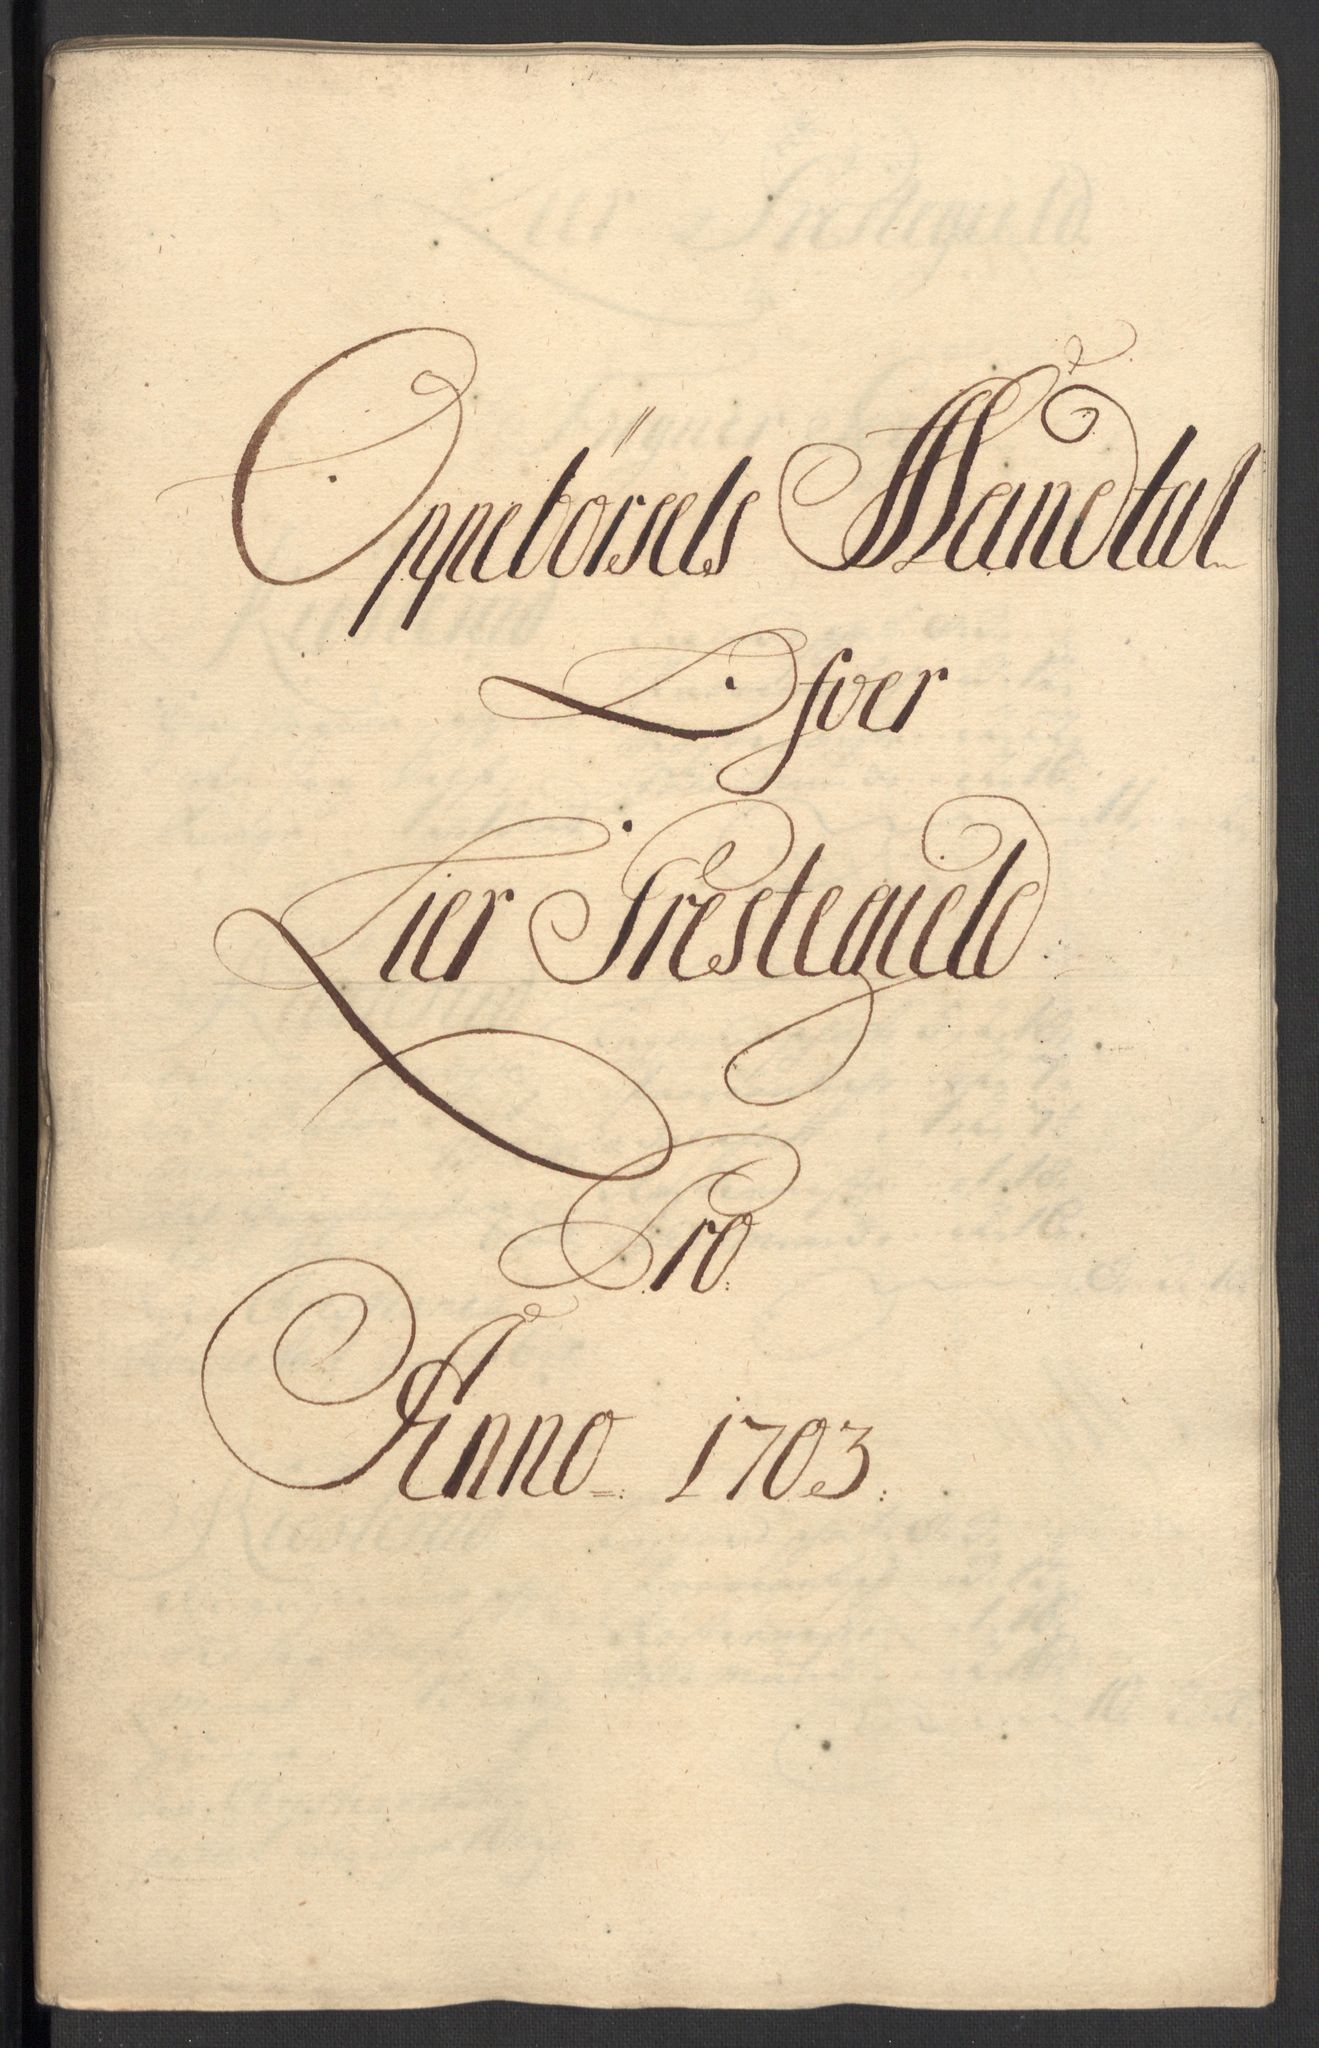 Oppebörsels Mandtal
Ofver
Lier Præstegield
Pro
Anno 1703